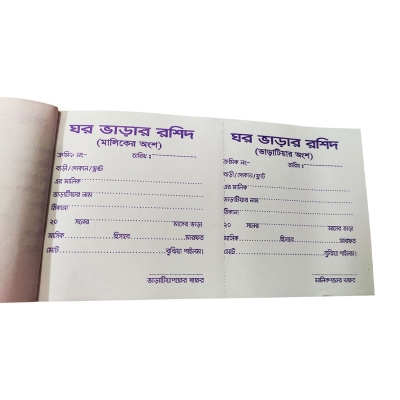 ঘর ভাড়ার রশিদ
(মালিকের অংশ)
ক্রমিক নং- তারিখ :
বাড়ী/দোকান/ফ্ল্যাট
এর মালিক
ভাড়াটিয়ার নাম
ঠিকানা
২০ সনের মাসের ভাড়া
মাসিক হিসাবে মারফত
মোট বুঝিয়া পাইলাম।
ভাড়াটিয়াপক্ষের স্বাক্ষর
ঘর ভাড়ার রশিদ
(ভাড়াটিয়ার অংশ)
ক্রমিক নং- তারিখ :
বাড়ী/দোকান/ফ্ল্যাট
এর মালিক
ভাড়াটিয়ার নাম
ঠিকানা
২০ সনের মাসের ভাড়া
মাসিক হিসাবে মারফত
মোট বুঝিয়া পাইলাম।
মালিকপক্ষের স্বাক্ষর